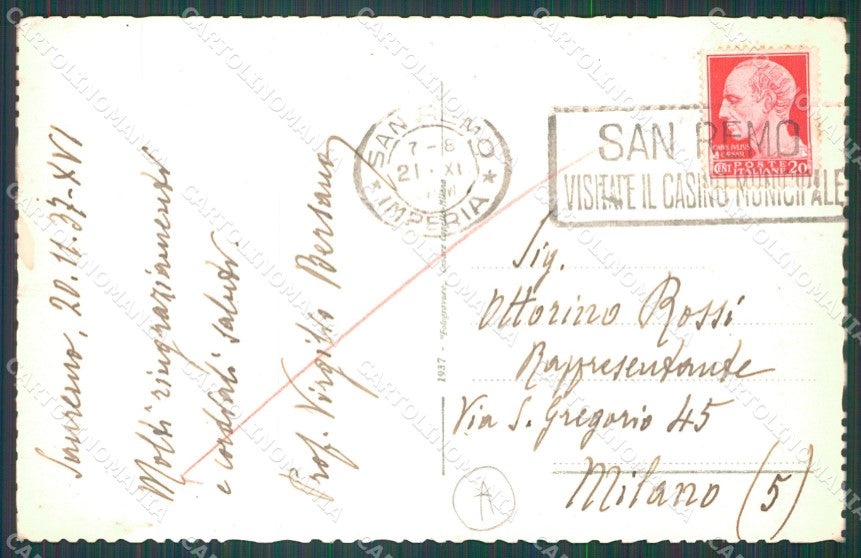 Sanremo, 20.11.37-XVI
Molti ringraziamenti
e cordiali saluti.
Prof. Virgilio Bersano
SAN REMO
7-8
21 XI
IMPERIA
1937 - "Fotogravure"
SAN REMO
VISITATE IL CASINO MUNICIPALE
CAIVS IVLIVS
CAESAR
CENT POSTE ITALIANE 20
Sig.
Ottorino Rossi
Rappresentante
Via S. Gregorio 45
Milano (5)
A
CARTOLINOMANIA